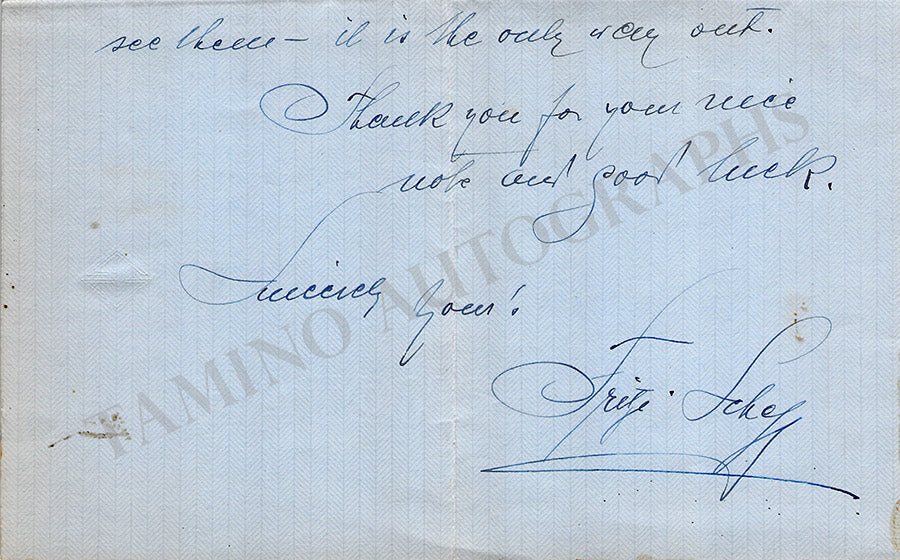 see them – it is the only way out.
Thank you for your nice
note and good luck.
Sincerely yours!
Fritzi Scheff
TAMINO AUTOGRAPHS